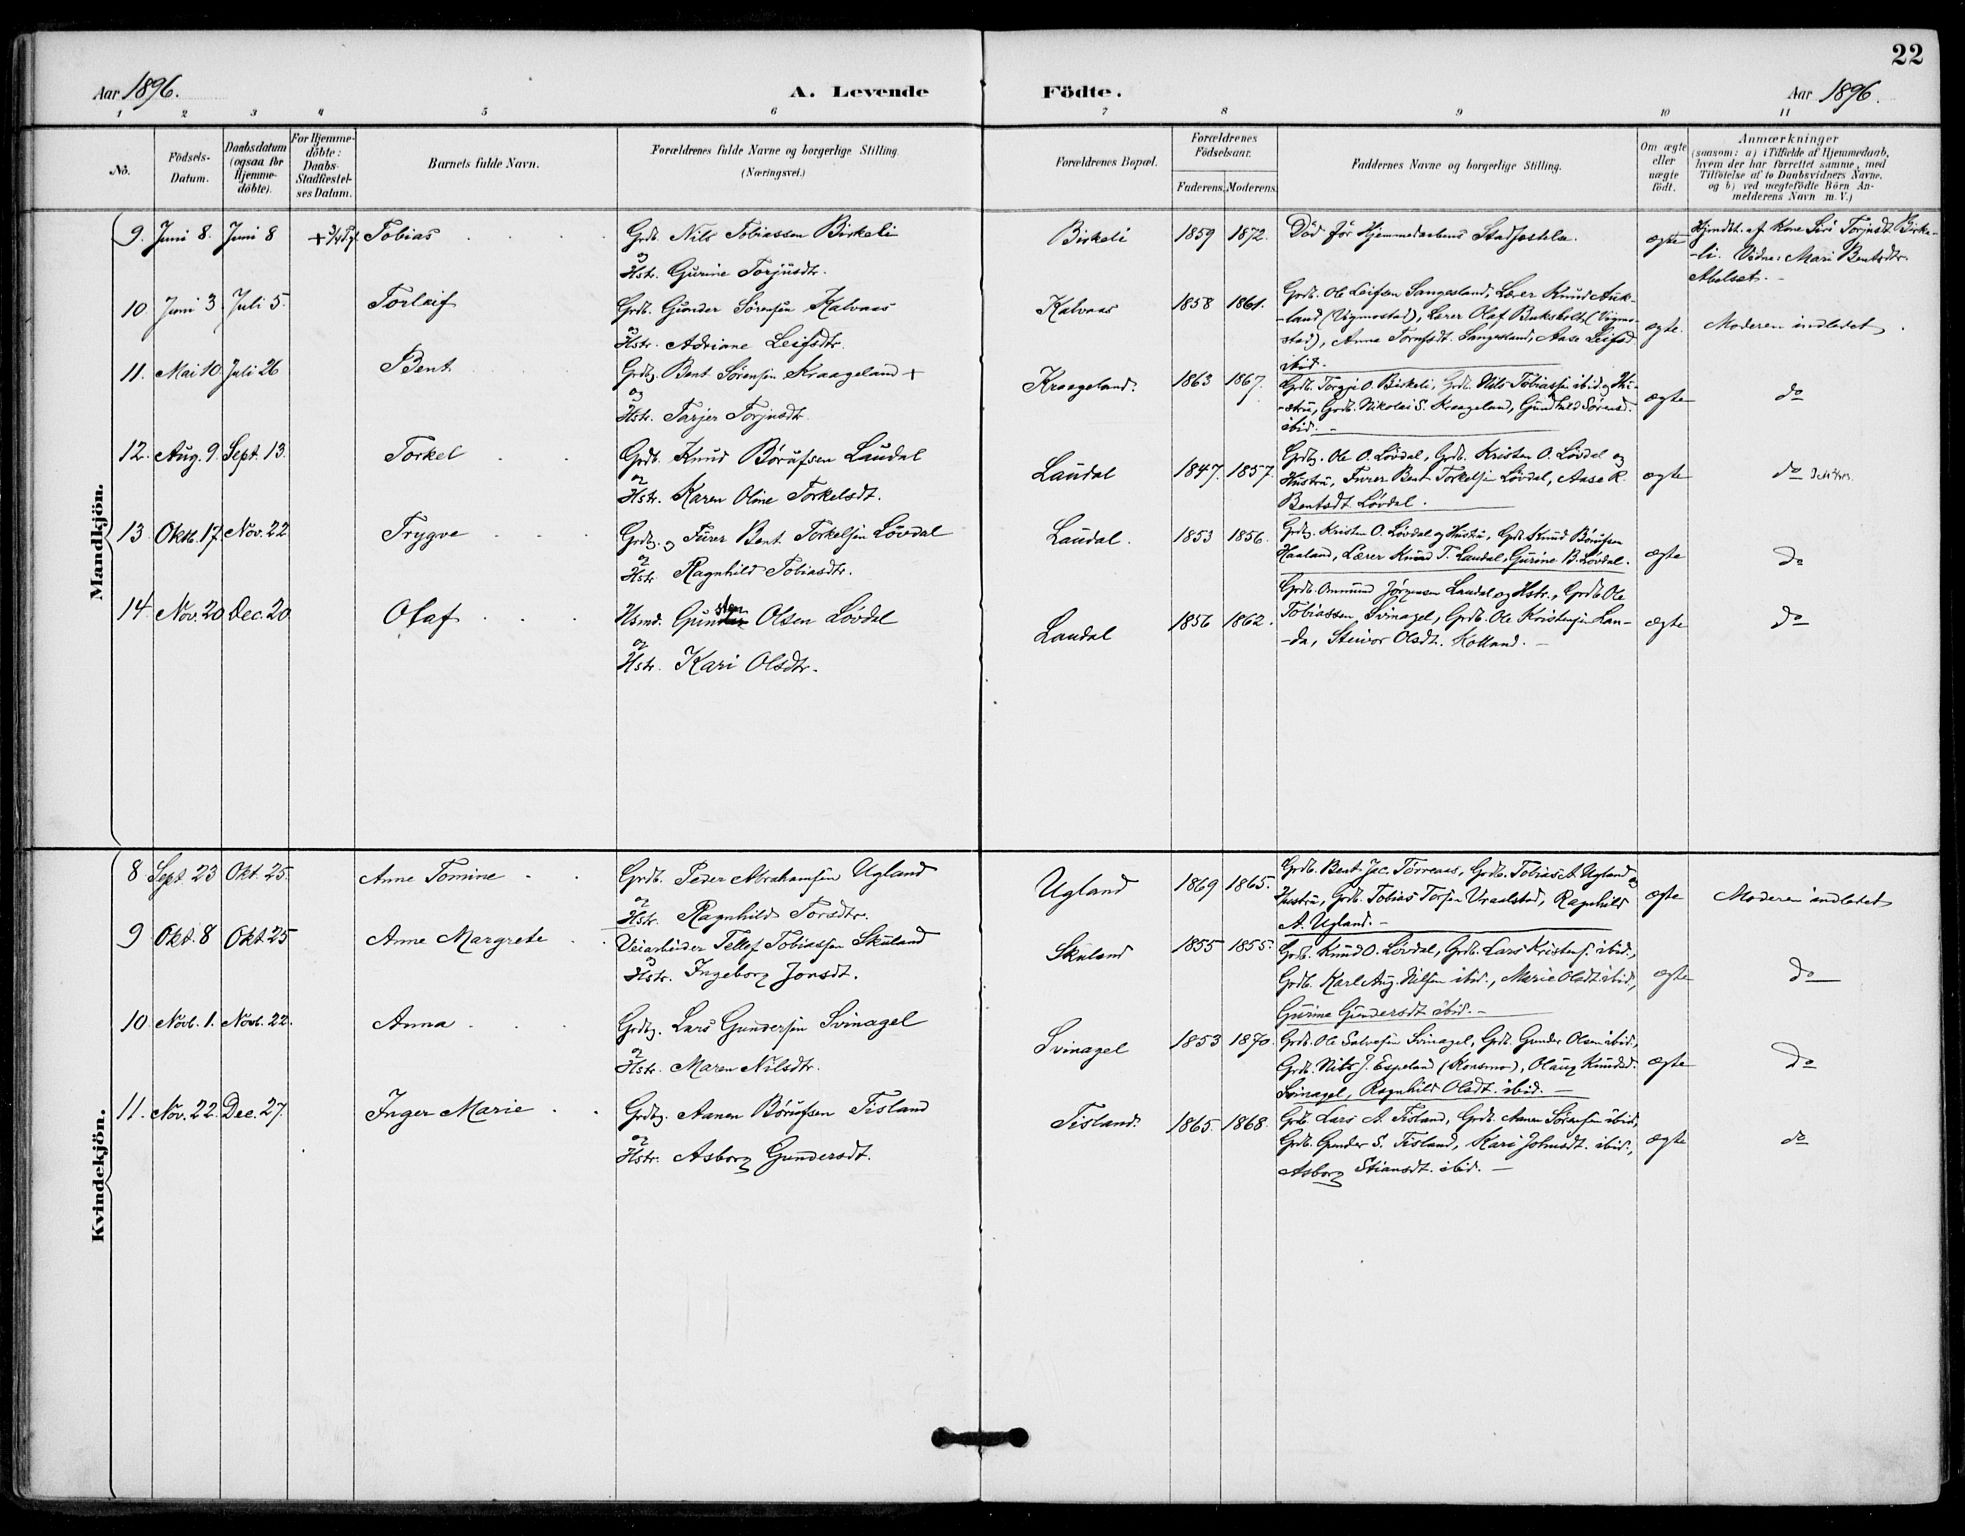 22
Aar 1896.
A. Levende Födte.
Aar 1896.
1 2 3 4 5 6 7 8 9 10 11
No.
Födsels-Datum.
Daabsdatum (ogsaa for Hjemme-döbte).
For Hjemme-döbte: Daabs-Stadfæstel-ses Datum.
Barnets fulde Navn.
Forældrenes fulde Navne og borgerlige Stilling.
(Næringsvei.)
Forældrenes Bopæl.
Forældrenes Födselsaar.
Faderens. Moderens.
Faddernes Navne og borgerlige Stilling.
Om ægte eller uægte födt.
Anmærkninger
(saasom: a) i Tilfælde af Hjemmedaab,
hvem der har forrettet samme, med
Tilföielse af to Daabsvidners Navne.
og b) ved uægtefödte Börn An-
melderens Navn m. V.)
Mandkjön.
9. Juni 8. Juni 8 Tobias Grdb. Nils Tobiassen Birkeli
og
Hstr. Gurine Torjusdtr.
Birkeli 1859 1872. Död för Hjemmedaabens Stadfæstelse. ægte
Hjmdbt. af Kone Siri Torjusdt. Birke-
-li. Vidne: Mari Bentsdtr.
10 Juni 3. Juli 5. Torleif Grdb. Gunder Sørensen Kalvaas
og
Hstr. Adriane Leifsdtr.
Kalvaas 1858 1861.
Grdb. Ole Leifsen Sangesland, Lærer Knud Auk-
-land (Vigmostad), Lærer Olaf (Vigmo-
stad), Anna Sangesland, Aase Leifsd.
ibid.
ægte. Moderen indledet.
11. Mai 10. Juli 26 Bent Grdbg. Bent Sørensen Kraageland +
og
Hstr. Tarjer Torjusdtr.
Kraageland. 1863 1867.
Grdb. Torgje O. Birkeli, Grdb. Nils Tobiassen ibid. og Hu-
-stru, Grdb. Nikolai S. Kraageland, Gundhild Sørensd.
ibid. —
ægte do
12. Aug. 9. Sept. 13. Torkel Grdb. Knud Börufsen Laudal
og
Hstr. Karen Oline Torkelsdt.
Laudal 1847. 1857.
Grdbg. Ole O. Løvdal, Grdb. Kristen O. Løvdal og
Hustru, Furer Bent Torkelsen Løvdal, Aase R.
Bentsdt. Løvdal.
ægte do
13. Oktb. 17. Nov. 22 Trygve Grdbg. og Furer Bent Torkelsen Løvdal
og
Hstr. Ragnhild Tobiasdtr.
Laudal. 1853 1856.
Grdbg. Kristen O. Løvdal og Hustru, Grdb. Knud Börufsen
Haaland, Lærer Knud T. Laudal, Gurine B. Løvdal.
ægte do
14. Nov. 20 Dec. 20 Olaf Hsmd. Gunsten Olsen Løvdal
og
Hstr. Kari Olsdtr.
Laudal 1856 1862.
Grdb. Ommund Jørgensen Laudal og Hstr., Grdb. Ole
Tobiassen, Svinagel, Grdb. Ole Kristensen Lan-
-da, Olsdt. —
ægte do
Kvindekjön.
8 Sept. 23 Okt. 25. Anne Tomine Grdb. Peder Abrahamsen Ugland
og
Hstr. Ragnhild Torsdtr.
Ugland 1869 1865.
Grdb. Bent Jac. Grdb. Tobias A. Ugland og
Hustru, Grdb. Tobias Torsen Vraalstad, Ragnhild
A. Ugland. —
ægte Moderen indledet
9 Okt. 8 Okt 25 Anne Margrete Veiarbeider Tellef Tobiassen Skuland
og
Hstr. Ingeborg Jonsdt.
Skuland 1855 1855.
Grdb. Knud O. Løvdal, Grdb. Lars Kristens. ibid.,
Grdb. Karl Aug. Nilsen ibid., Marie Olsdt. ibid.,
Gurine Gundersdt ibid. —
ægte do
10 Novb. 1. Novb. 22. Anna Grdbg. Lars Gundersen Svinagel
og
Hstr. Maren Nilsdtr.
Svinagel 1853 1870.
Grdb. Ole Salvesen Svinagel, Grdb. Gunder Olsen ibid.,
Grdb. Nils J. Espeland (Konsmo), Olaug Knudsd.
Svinagel, Ragnhild Olsdt. ibid. —
ægte do
11. Nov. 22. Dec. 27. Inger Marie Grdbg. Aanen Börufsen Tisland
og
Hstr. Asborg Gundersdt.
Tisland. 1865. 1868.
Grdb. Lars A. Tisland, Grdb. Aanen Sörensen ibid.,
Grdb. Gunder S. Tisland, Kari Johnsdt. ibid.,
Asborg Stiansdt. ibid. —
ægte do